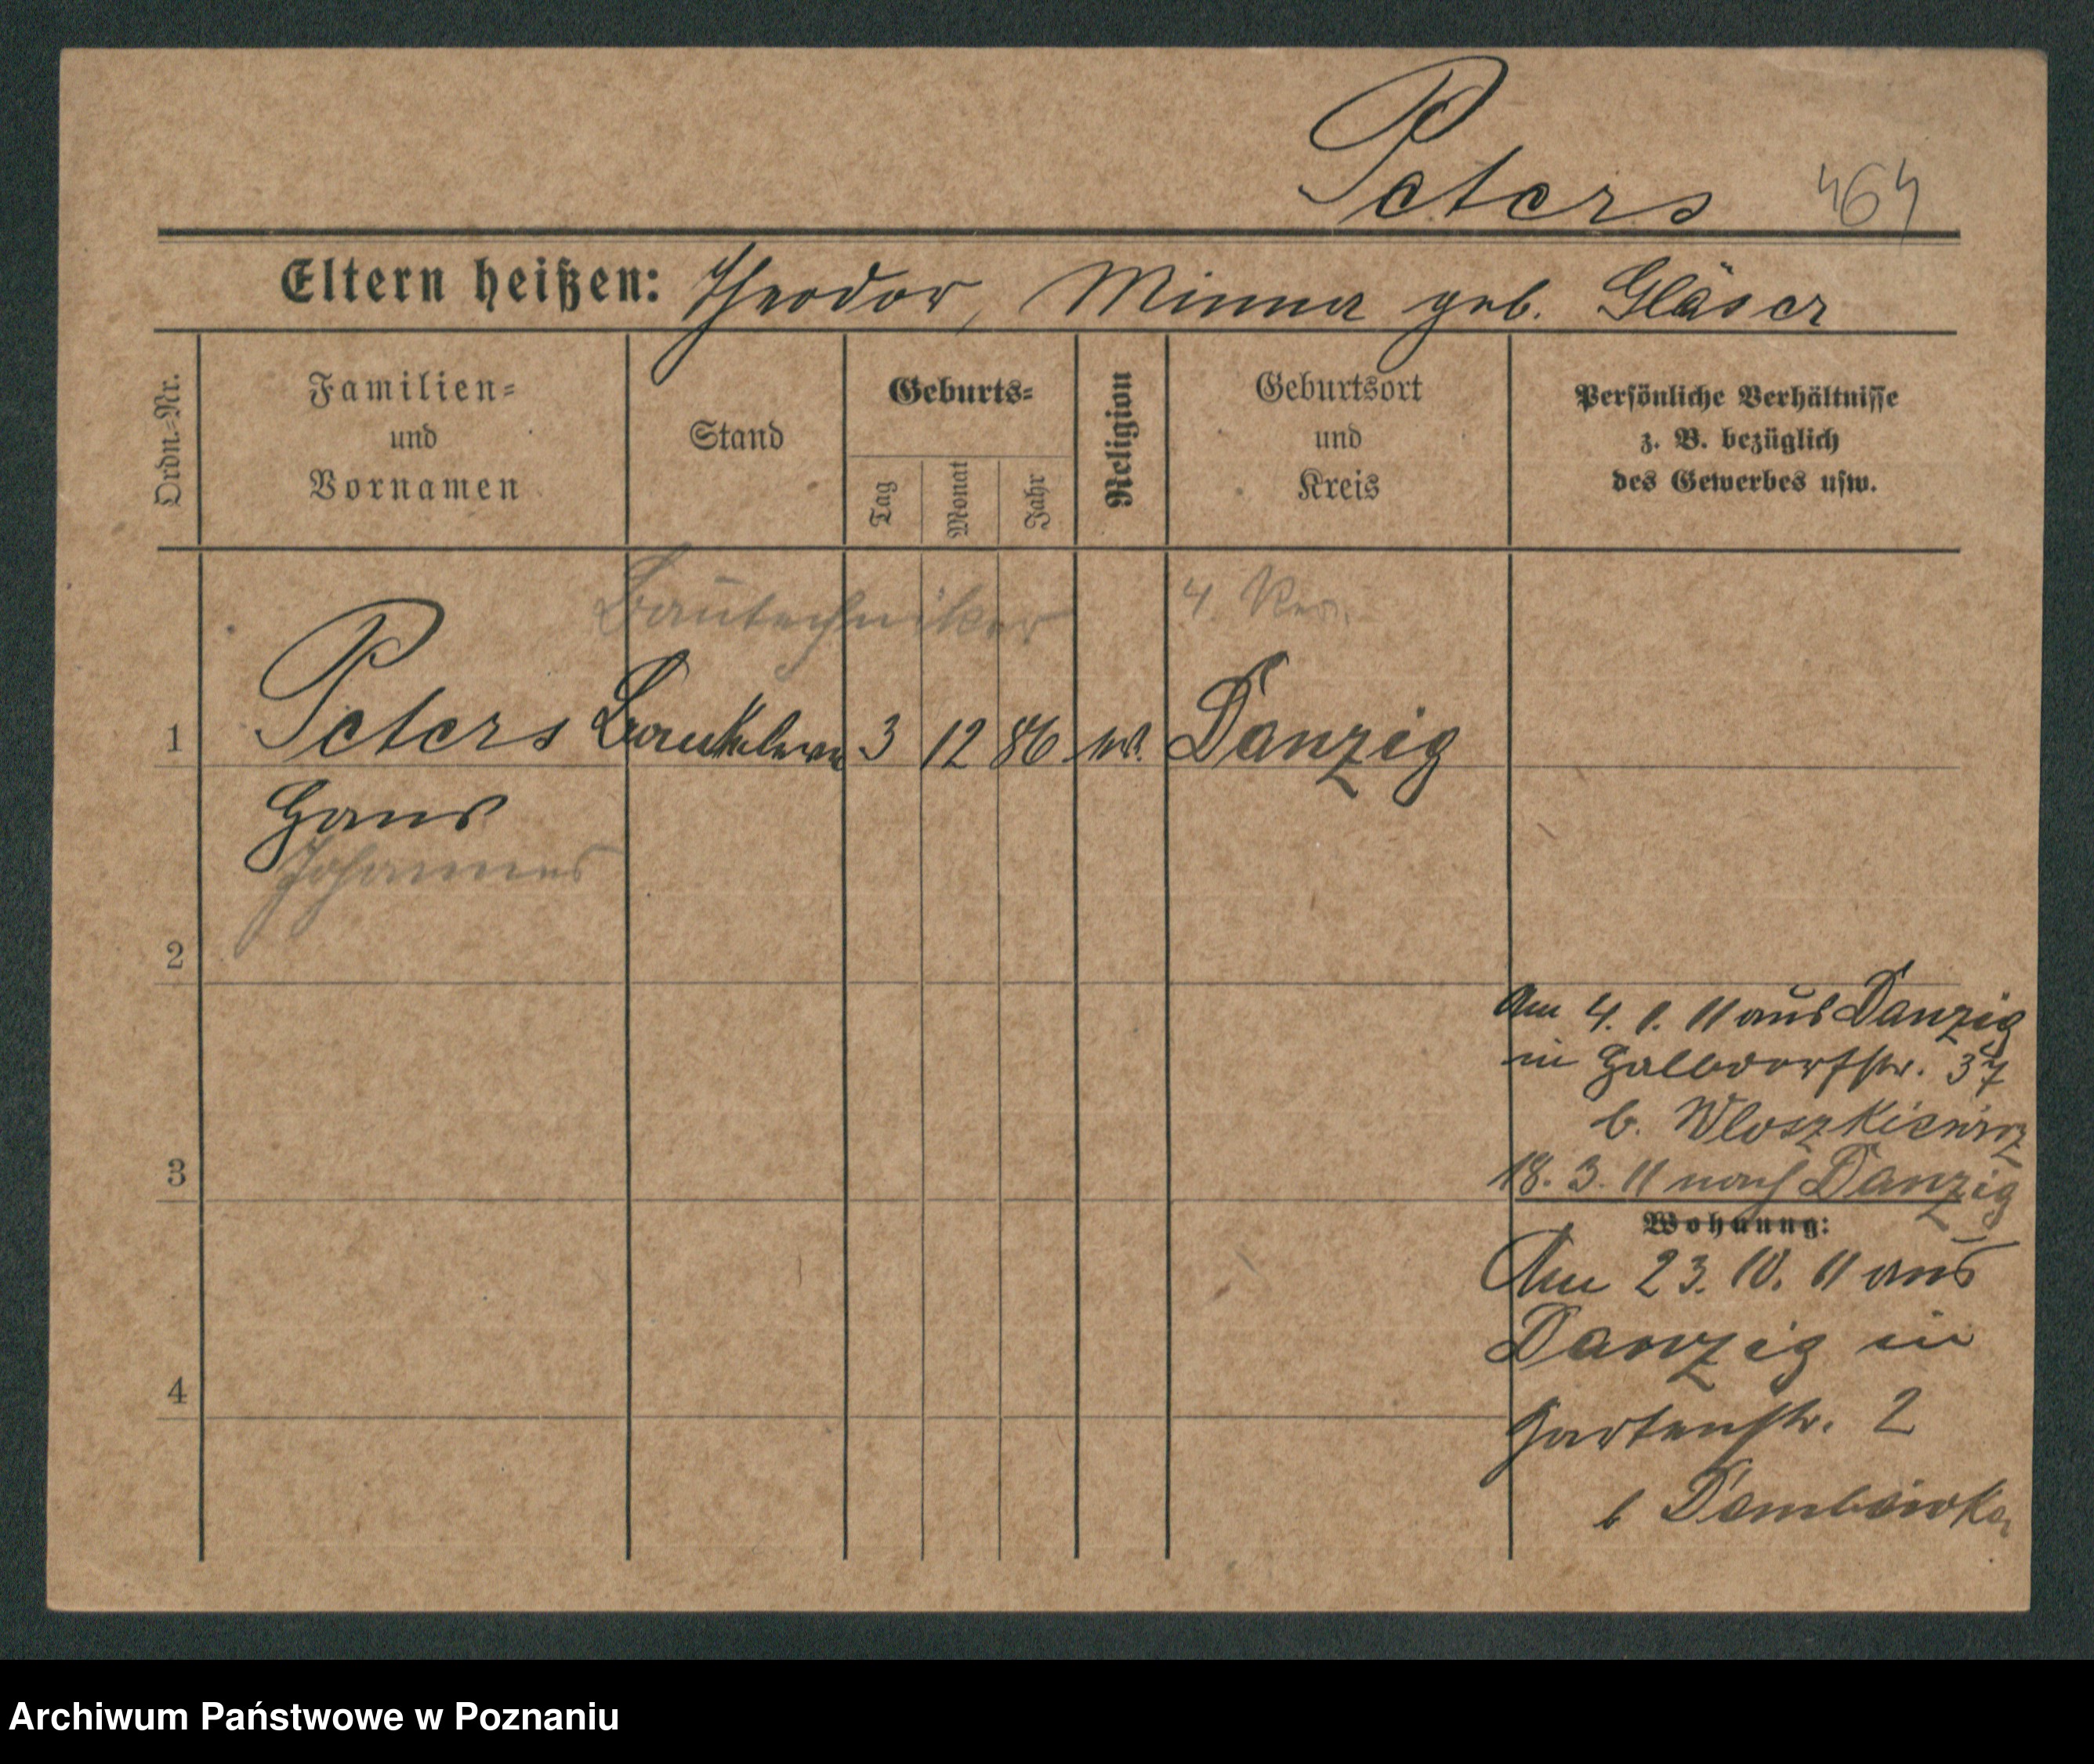 Peters 464
Eltern heißen: Theodor, Minna geb. Gläser
Ordn.-Nr.
Familien-
und
Vornamen
Stand
Geburts-
Tag
Monat
Jahr
Religion
Geburtsort
und
Kreis
Persönliche Verhältnisse
z. B. bezüglich
des Gewerbes usw.
Bautechniker 4
1 Peters 3 12 86 Danzig
Hans
Johannes
2
Am 4. 1. 11 aus Danzig
in Halbdorfstr. 37
b.
18. 3. 11 nach Danzig
3
Wohnung:
Am 23. 10. 11 aus
Danzig in
4
Gartenstr. 2
b
Archiwum Państwowe w Poznaniu